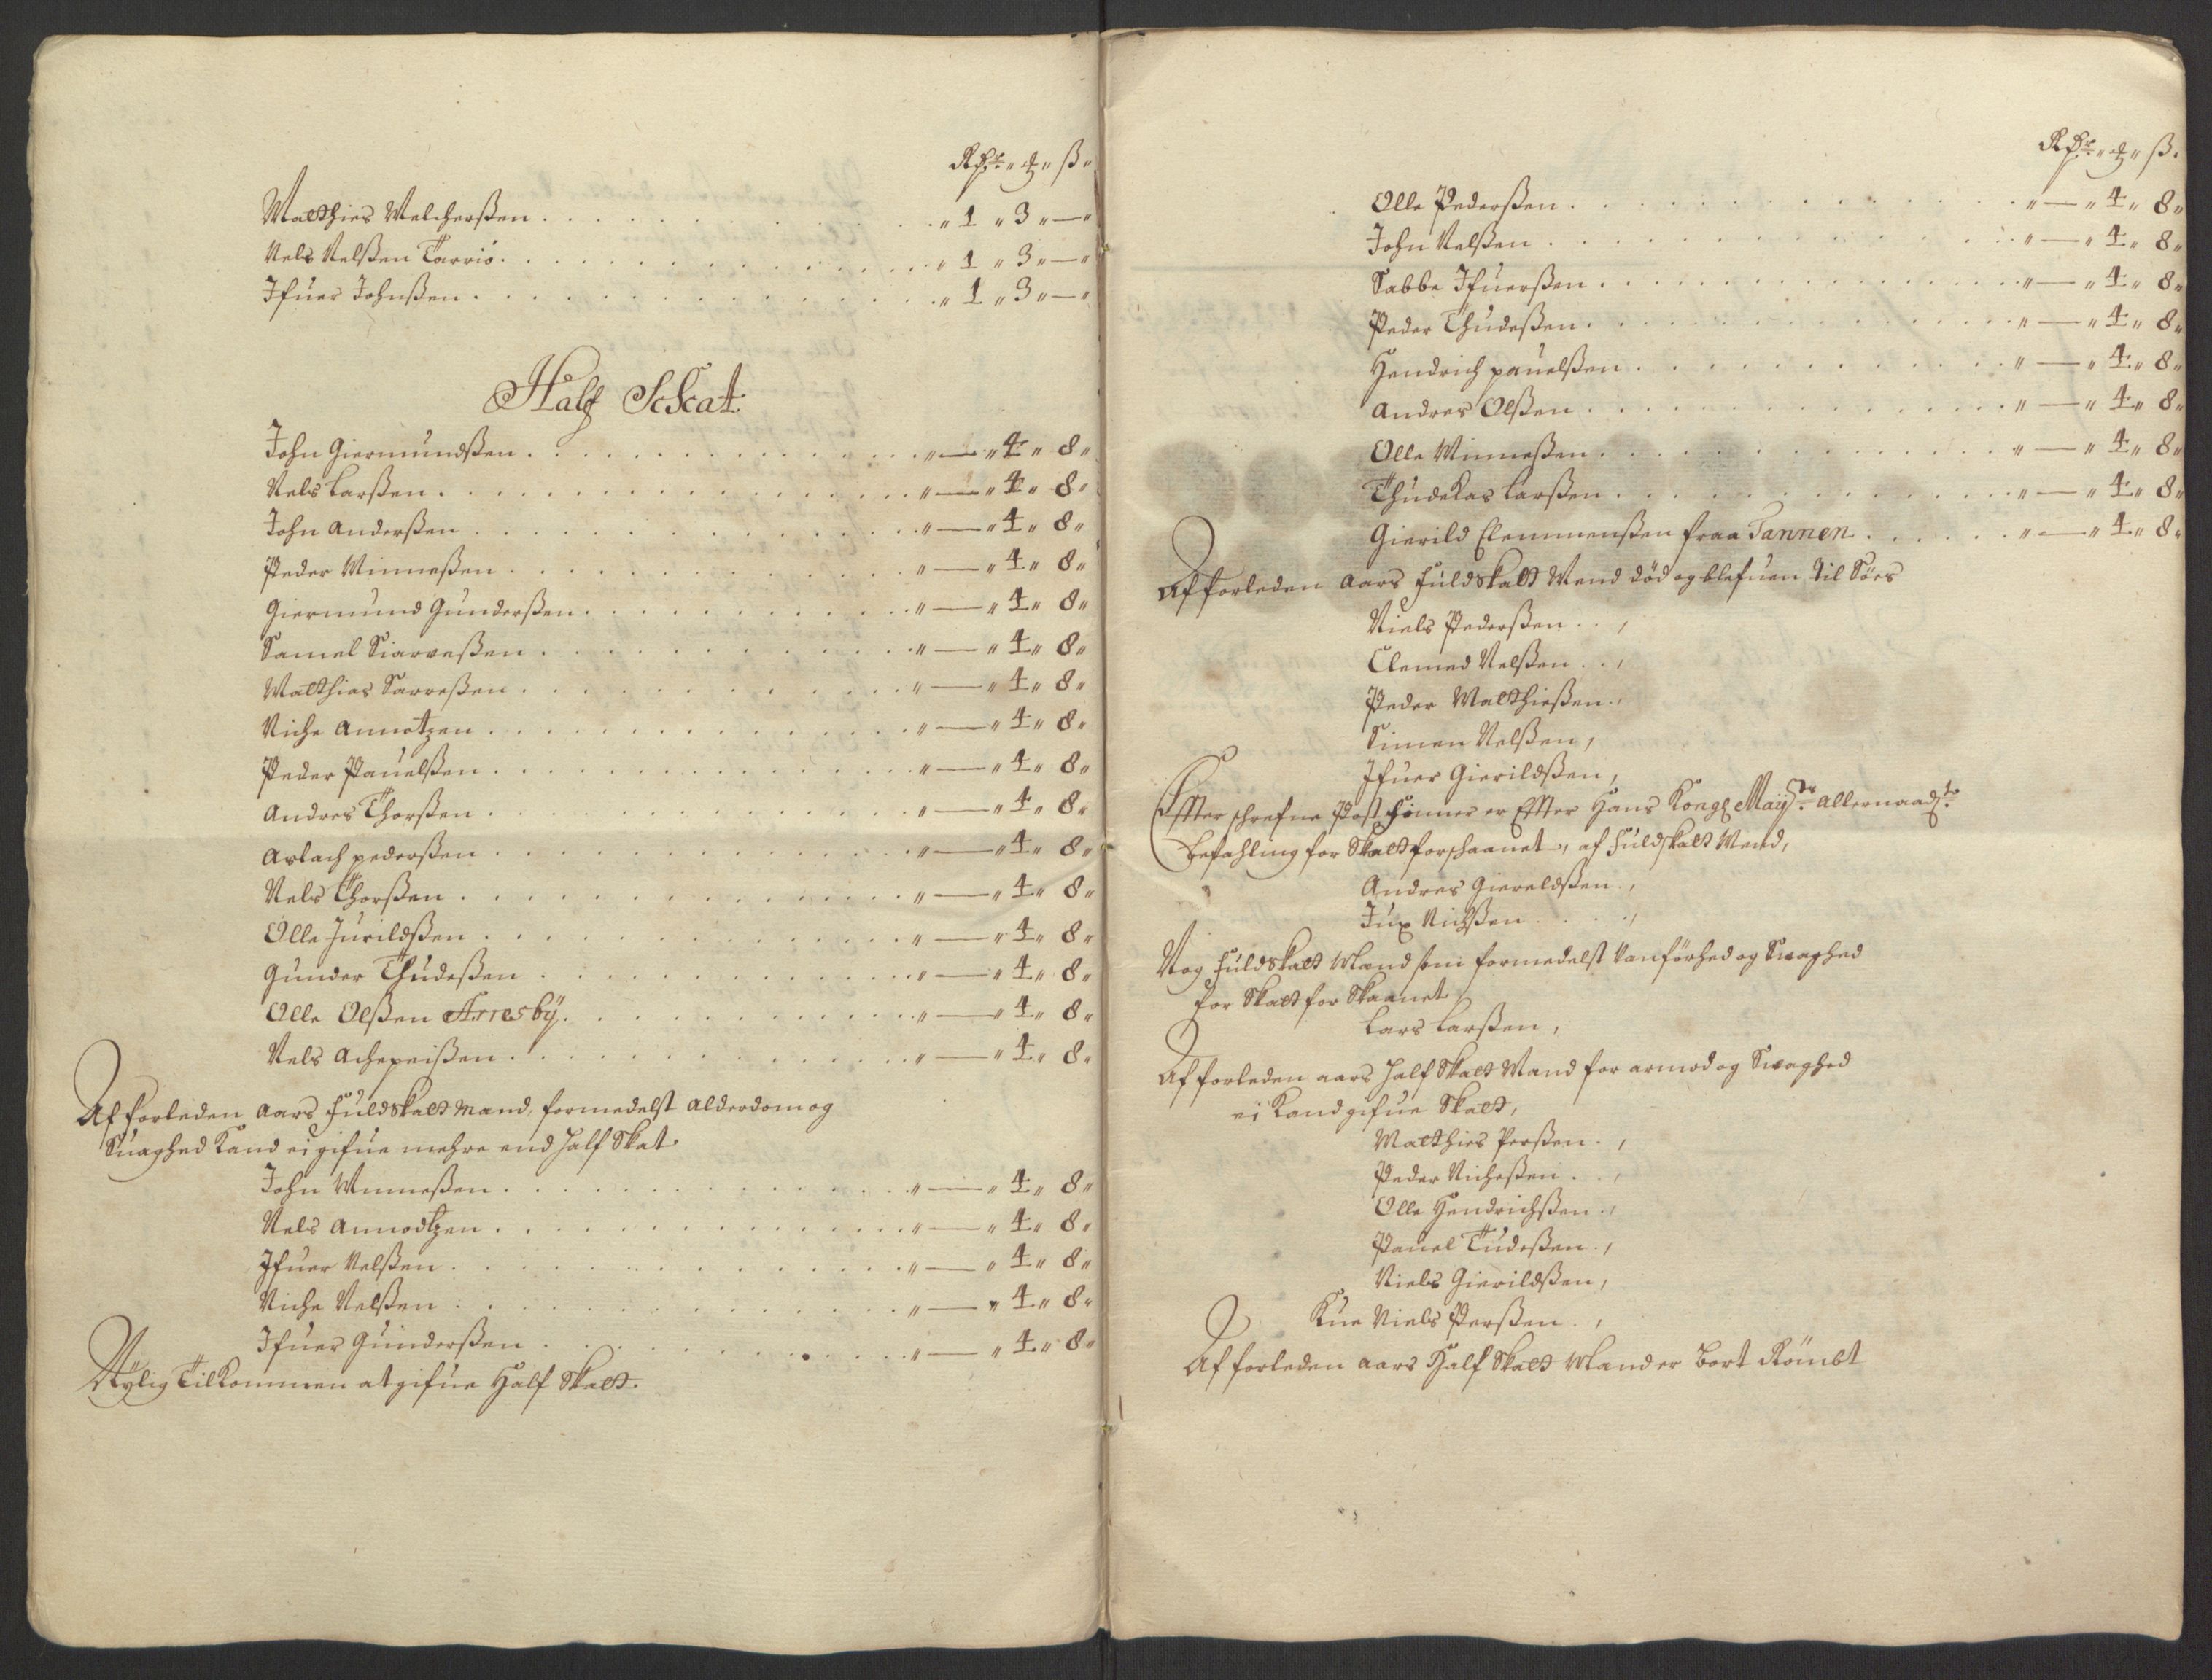 Rdr „ ₰ „ ß „
Matthies Melcherßen . . . „ 1 „ 3 „ — „
Nels Nelßen Tarriö . . . „ 1 „ 3 „ — „
Ifuer Johnßen . . . „ 1 „ 3 „ — „
Half Schat
John Giermundßen . . . „ — „ 4 „ 8 „
Nels Larßen . . . „ — „ 4 „ 8 „
John Anderßen . . . „ — „ 4 „ 8 „
Peder Winneßen . . . „ — „ 4 „ 8 „
Giermund Gunderßen . . . „ — „ 4 „ 8 „
Samel Siarveßen . . . „ — „ 4 „ 8 „
Matthias Sarreßen . . . „ — „ 4 „ 8 „
Niche Annotzen . . . „ — „ 4 „ 8 „
Peder Pauelßen . . . „ — „ 4 „ 8 „
Andres Thorßen . . . „ — „ 4 „ 8 „
Aslach pederßen . . . „ — „ 4 „ 8 „
Nels Thorßen . . . „ — „ 4 „ 8 „
Olle Jurildßen . . . „ — „ 4 „ 8 „
Gunder Thudeßen . . . „ — „ 4 „ 8 „
Olle Olßen Arresbÿ . . . „ — „ 4 „ 8 „
Nels Achepeißen . . . „ — „ 4 „ 8 „
Af forleden aars fuldskatt mand, formedelst alderdom og
Suaghed Kand ei gifue mehre end half Skat
John Winneßen . . . „ — „ 4 „ 8 „
Nels Annodtzen . . . „ — „ 4 „ 8 „
Ifuer Nelßen . . . „ — „ 4 „ 8 „
Niche Nelßen . . . „ — „ 4 „ 8 „
Ifuer Gunderßen . . . „ — „ 4 „ 8 „
Nylig Tilkommen at gifue Half Skatt.
Rdr „ ₰ „ ß „
Olle Pederßen . . . „ — „ 4 „ 8 „
John Nelßen . . . „ — „ 4 „ 8 „
Sabbe Ifuerßen . . . „ — „ 4 „ 8 „
Peder Thudeßen . . . „ — „ 4 „ 8 „
Hendrich pauelßen . . . „ — „ 4 „ 8 „
Andres Olßen . . . „ — „ 4 „ 8 „
Olle Winneßen . . . „ — „ 4 „ 8 „
Thudekas Larßen . . . „ — „ 4 „ 8 „
Gierild Clemmenßen fraa Tannen . . . „ — „ 4 „ 8 „
Af forleden aars fuldskatt Mend död og blefuen til Söes
Niels Pederßen . . ,
Clemed Nelßen . . ,
Peder Matthießen . ,
Simen Nelßen ,
Ifuer Gierildßen ,
Effter schrefne Post finner er Effter Hans Kongl Mayts allernaadste
befahling for Skatt forschaanet, af fuldskatt Mend,
Andres Giereldßen . ,
Jux Nichßen . . . ,
Nog fuldskatt Mand som formedelst vanförhed og Svaghed
for Skatt for Skaanet
Lars Larßen ,
Af forleden aars half Skatt Mand for armod og Svaghed
ei Kand gifue Skatt,
Matthies Perßen . ,
Peder Nicheßen . . ,
Olle Hendrichßen . ,
Pauel Tudeßen . ,
Niels Gierildßen ,
Niels Perßen . ,
Af forleden aars Half Skatt Mand er bort Römbt